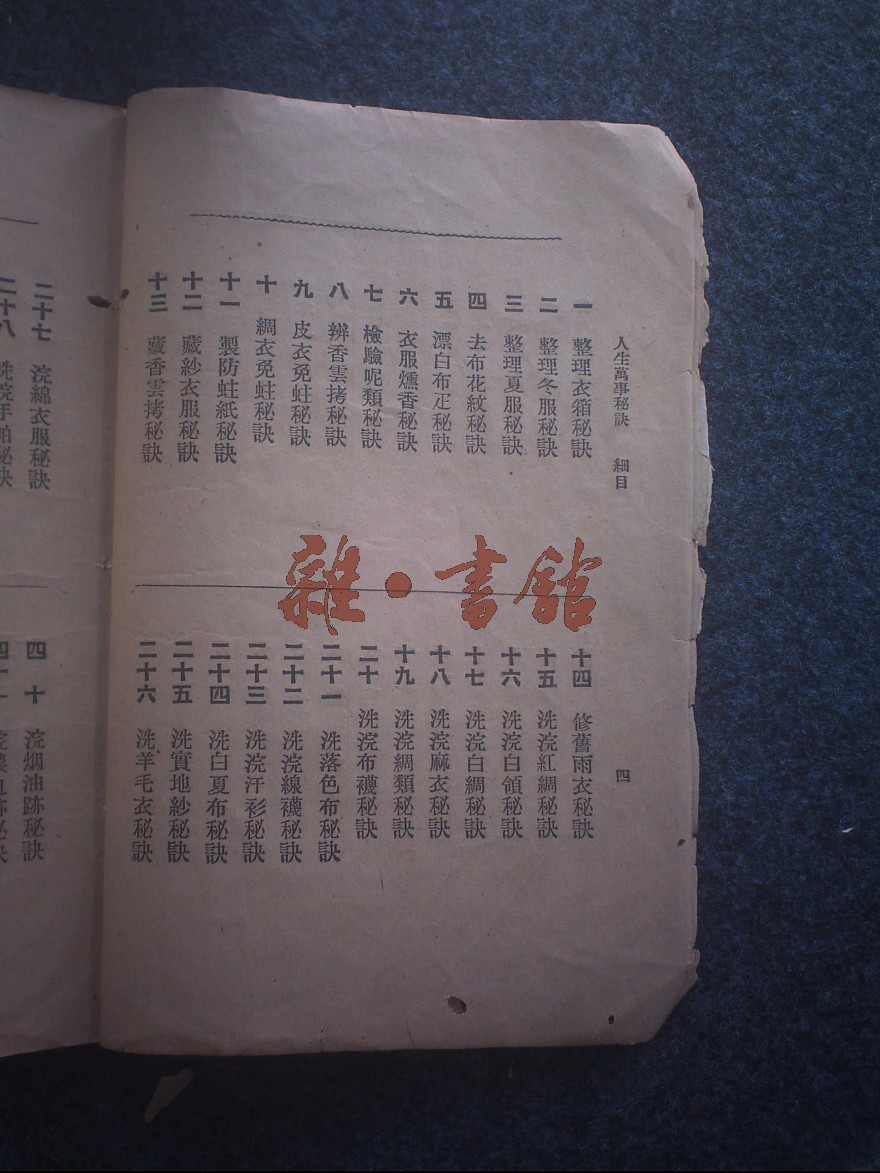 人生萬事秘訣 細目 四
一 整理衣箱秘訣
二 整理冬服秘訣
三 整理夏服秘訣
四 去布花紋秘訣
五 漂白布疋秘訣
六 衣服燻香秘訣
七 檢驗呢類秘訣
八 辨香雲拷秘訣
九 皮衣免蛀秘訣
十 綢衣免蛀秘訣
十一 製防蛀紙秘訣
十二 藏紗衣服秘訣
十三 藏香雲拷秘訣
十四 修舊雨衣秘訣
十五 洗浣紅綢秘訣
十六 洗浣白領秘訣
十七 洗浣白綢秘訣
十八 洗浣麻衣秘訣
十九 洗浣綢類秘訣
二十 洗浣布襪秘訣
二十一 洗落色布秘訣
二十二 洗浣線襪秘訣
二十三 洗浣汗衫秘訣
二十四 洗白夏布秘訣
二十五 洗實地紗秘訣
二十六 洗羊毛衣秘訣
二十七 浣綿衣服秘訣
二十八 洗浣手帕秘訣
四十 浣烟油跡秘訣
雜·書館